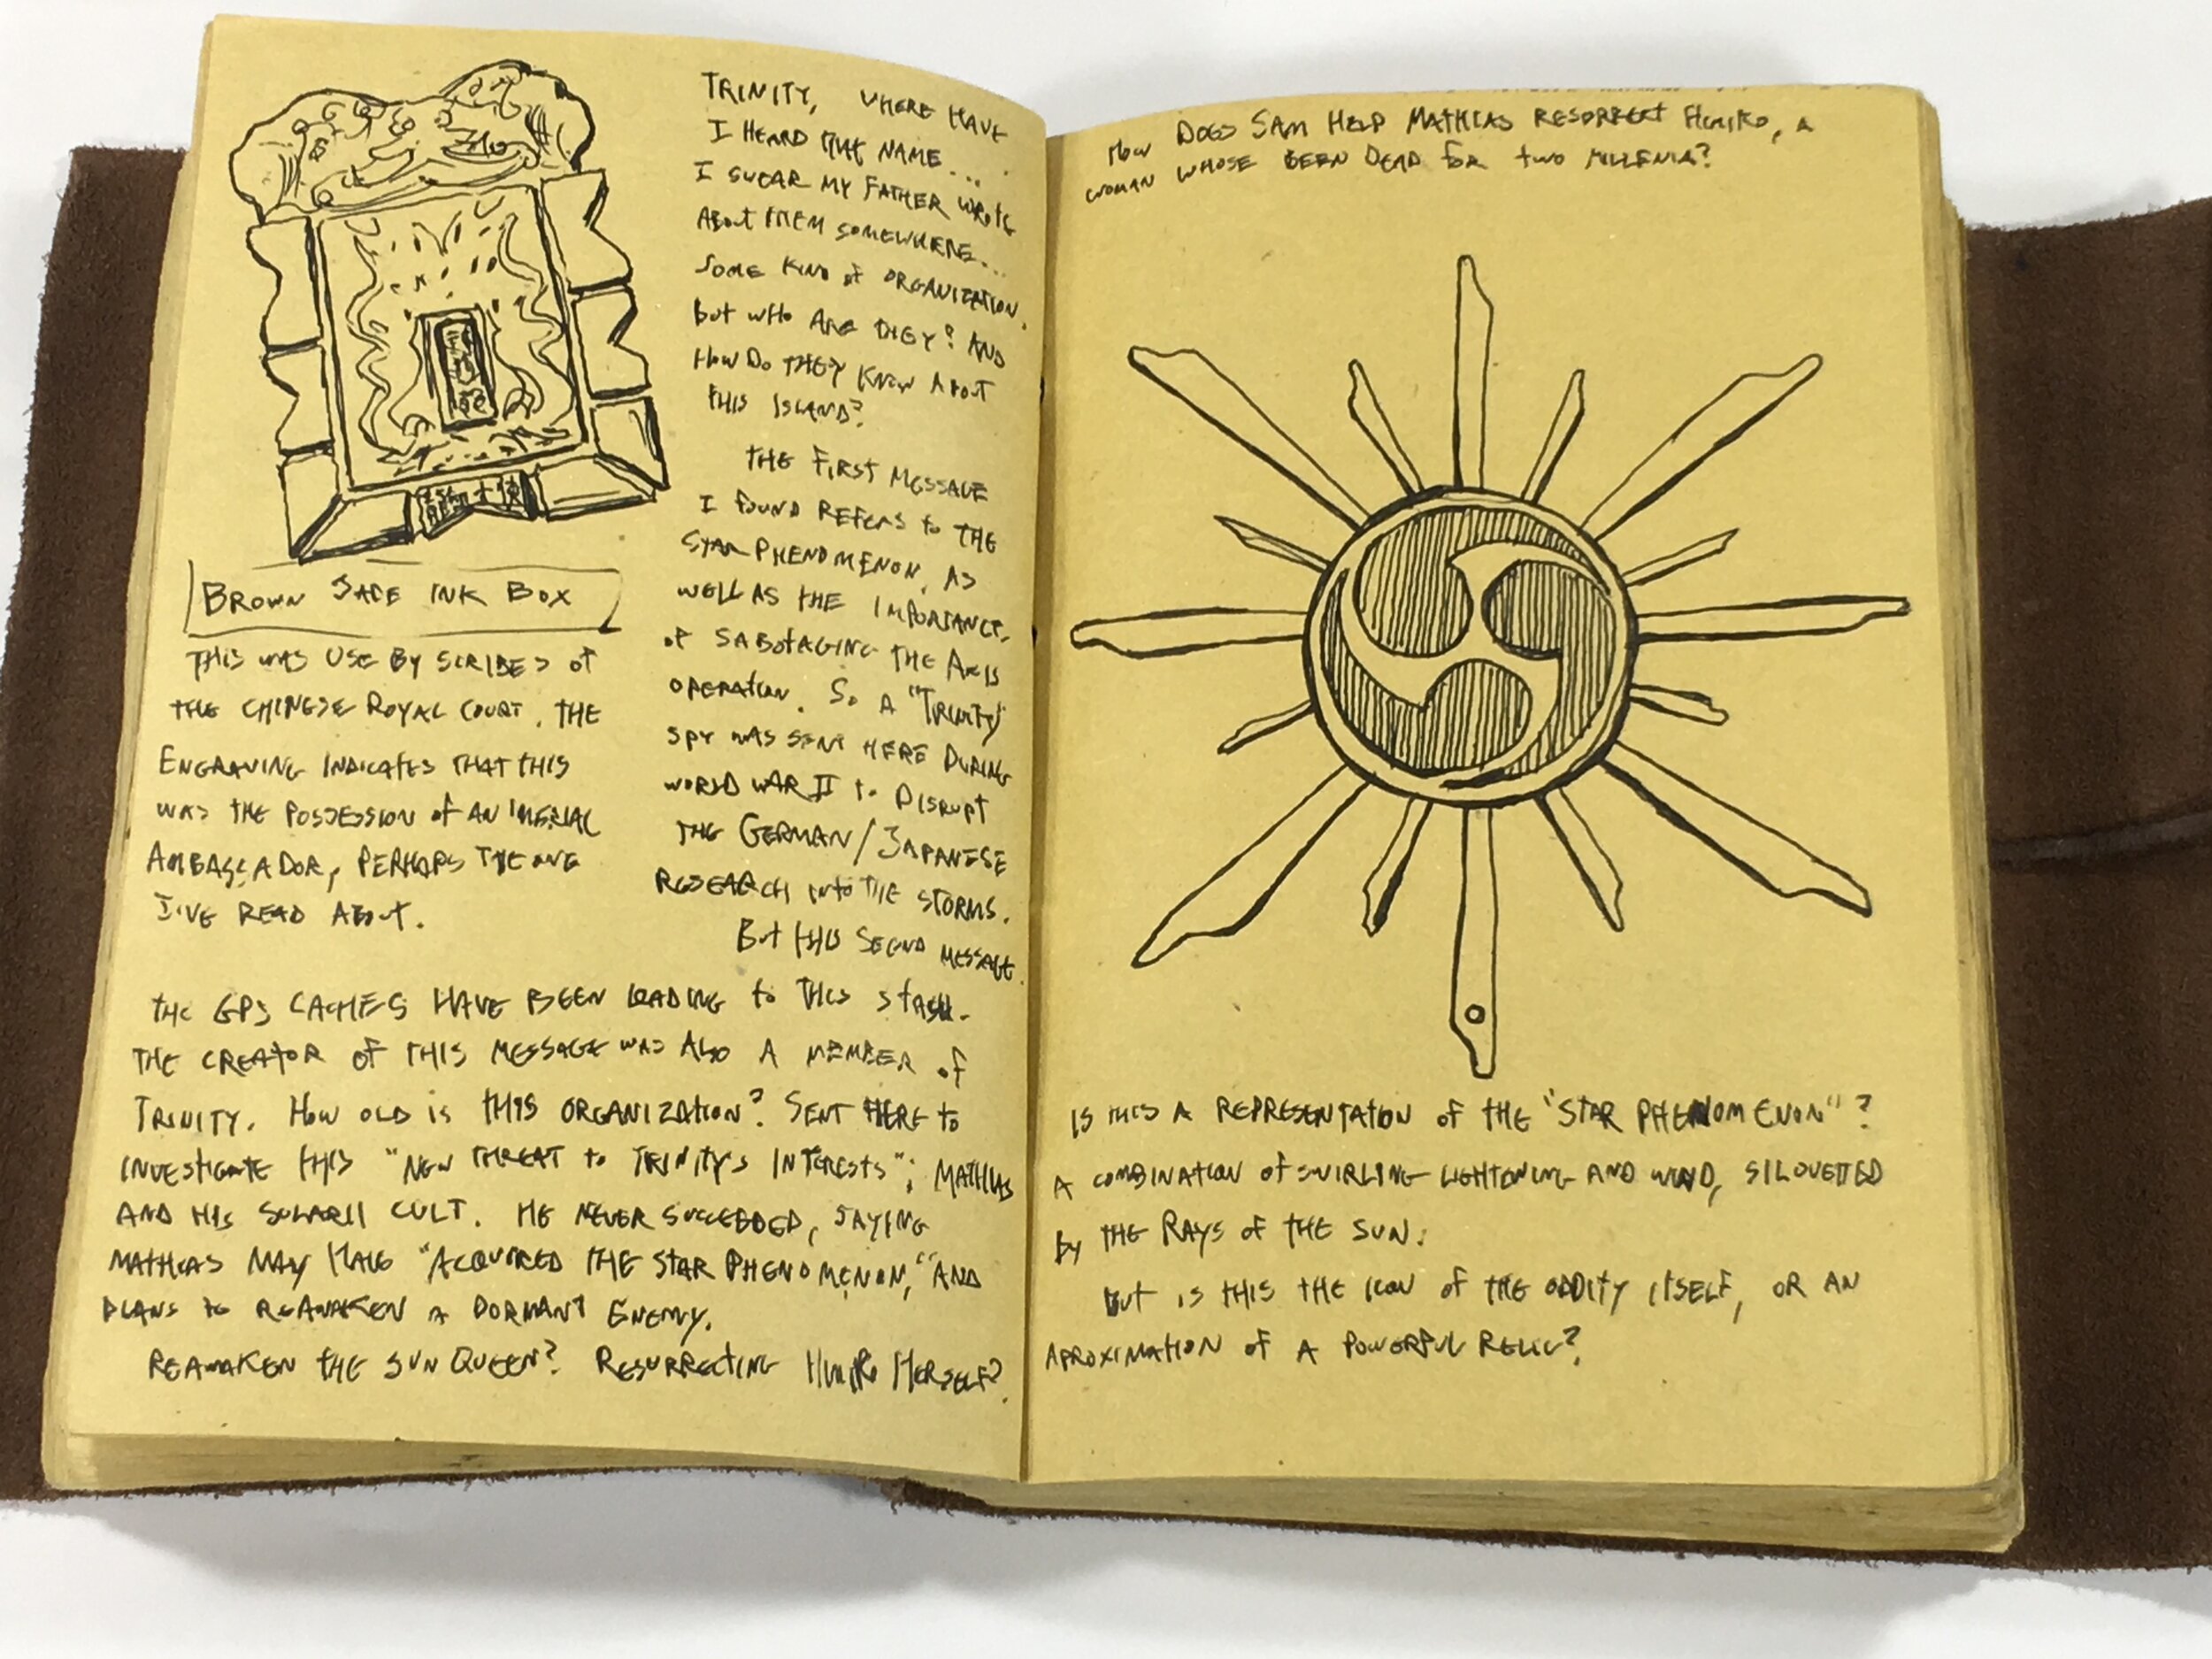 BROWN JADE INK BOX
THIS WAS USE BY SCRIBES OF
THE CHINESE ROYAL COURT. THE
ENGRAVING INDICATES THAT THIS
WAS THE POSSESSION OF AN IMERIAL
AMBASSADOR, PERHAPS THE ONE
I'VE READ ABOUT.
TRINITY, WHERE HAVE
I HEARD THAT NAME...
I SWEAR MY FATHER WROTE
ABOUT THEM SOMEWHERE...
SOME KIND OF ORGANIZATION.
BUT WHO ARE THEY? AND
HOW DO THEY KNOW ABOUT
THIS ISLAND?
THE FIRST MESSAGE
I FOUND REFERS TO THE
STAR PHENOMENON, AS
WELL AS THE IMPORTANCE,
OF SABOTAGING THE AXIS
OPERATION. SO A "TRINITY"
SPY WAS SENT HERE DURING
WORLD WAR II TO DISRUPT
THE GERMAN/JAPANESE
RESEARCH INTO THE STORMS.
BUT THIS SECOND MESSAGE.
THE GPS CACHES HAVE BEEN LEADING TO THIS STASH.
THE CREATOR OF THIS MESSAGE WAS ALSO A MEMBER OF
TRINITY. HOW OLD IS THIS ORGANIZATION? SENT HERE TO
INVESTIGATE THIS "NEW THREAT TO TRINITY'S INTERESTS"; MATHIAS
AND HIS SOLARII CULT. HE NEVER SUCCEEDED, SAYING
MATHIAS MAY HAVE "ACQUIRED THE STAR PHENOMENON," AND
PLANS TO REAWAKEN A DORMANT ENEMY.
REAWAKEN THE SUN QUEEN? RESURRECTING HIMIKO HERSELF?
HOW DOES SAM HELP MATHIAS RESORRECT HIMIKO, A
WOMAN WHOSE BEEN DEAD FOR TWO MILLENIA?
IS THIS A REPRESENTATION OF THE "STAR PHENOMENON"?
A COMBINATION OF SWIRLING LIGHTONING AND WIND, SILOUETTED
BY THE RAYS OF THE SUN.
BUT IS THIS THE ICON OF THE ODDITY ITSELF, OR AN
APROXIMATION OF A POWERFUL RELIC?